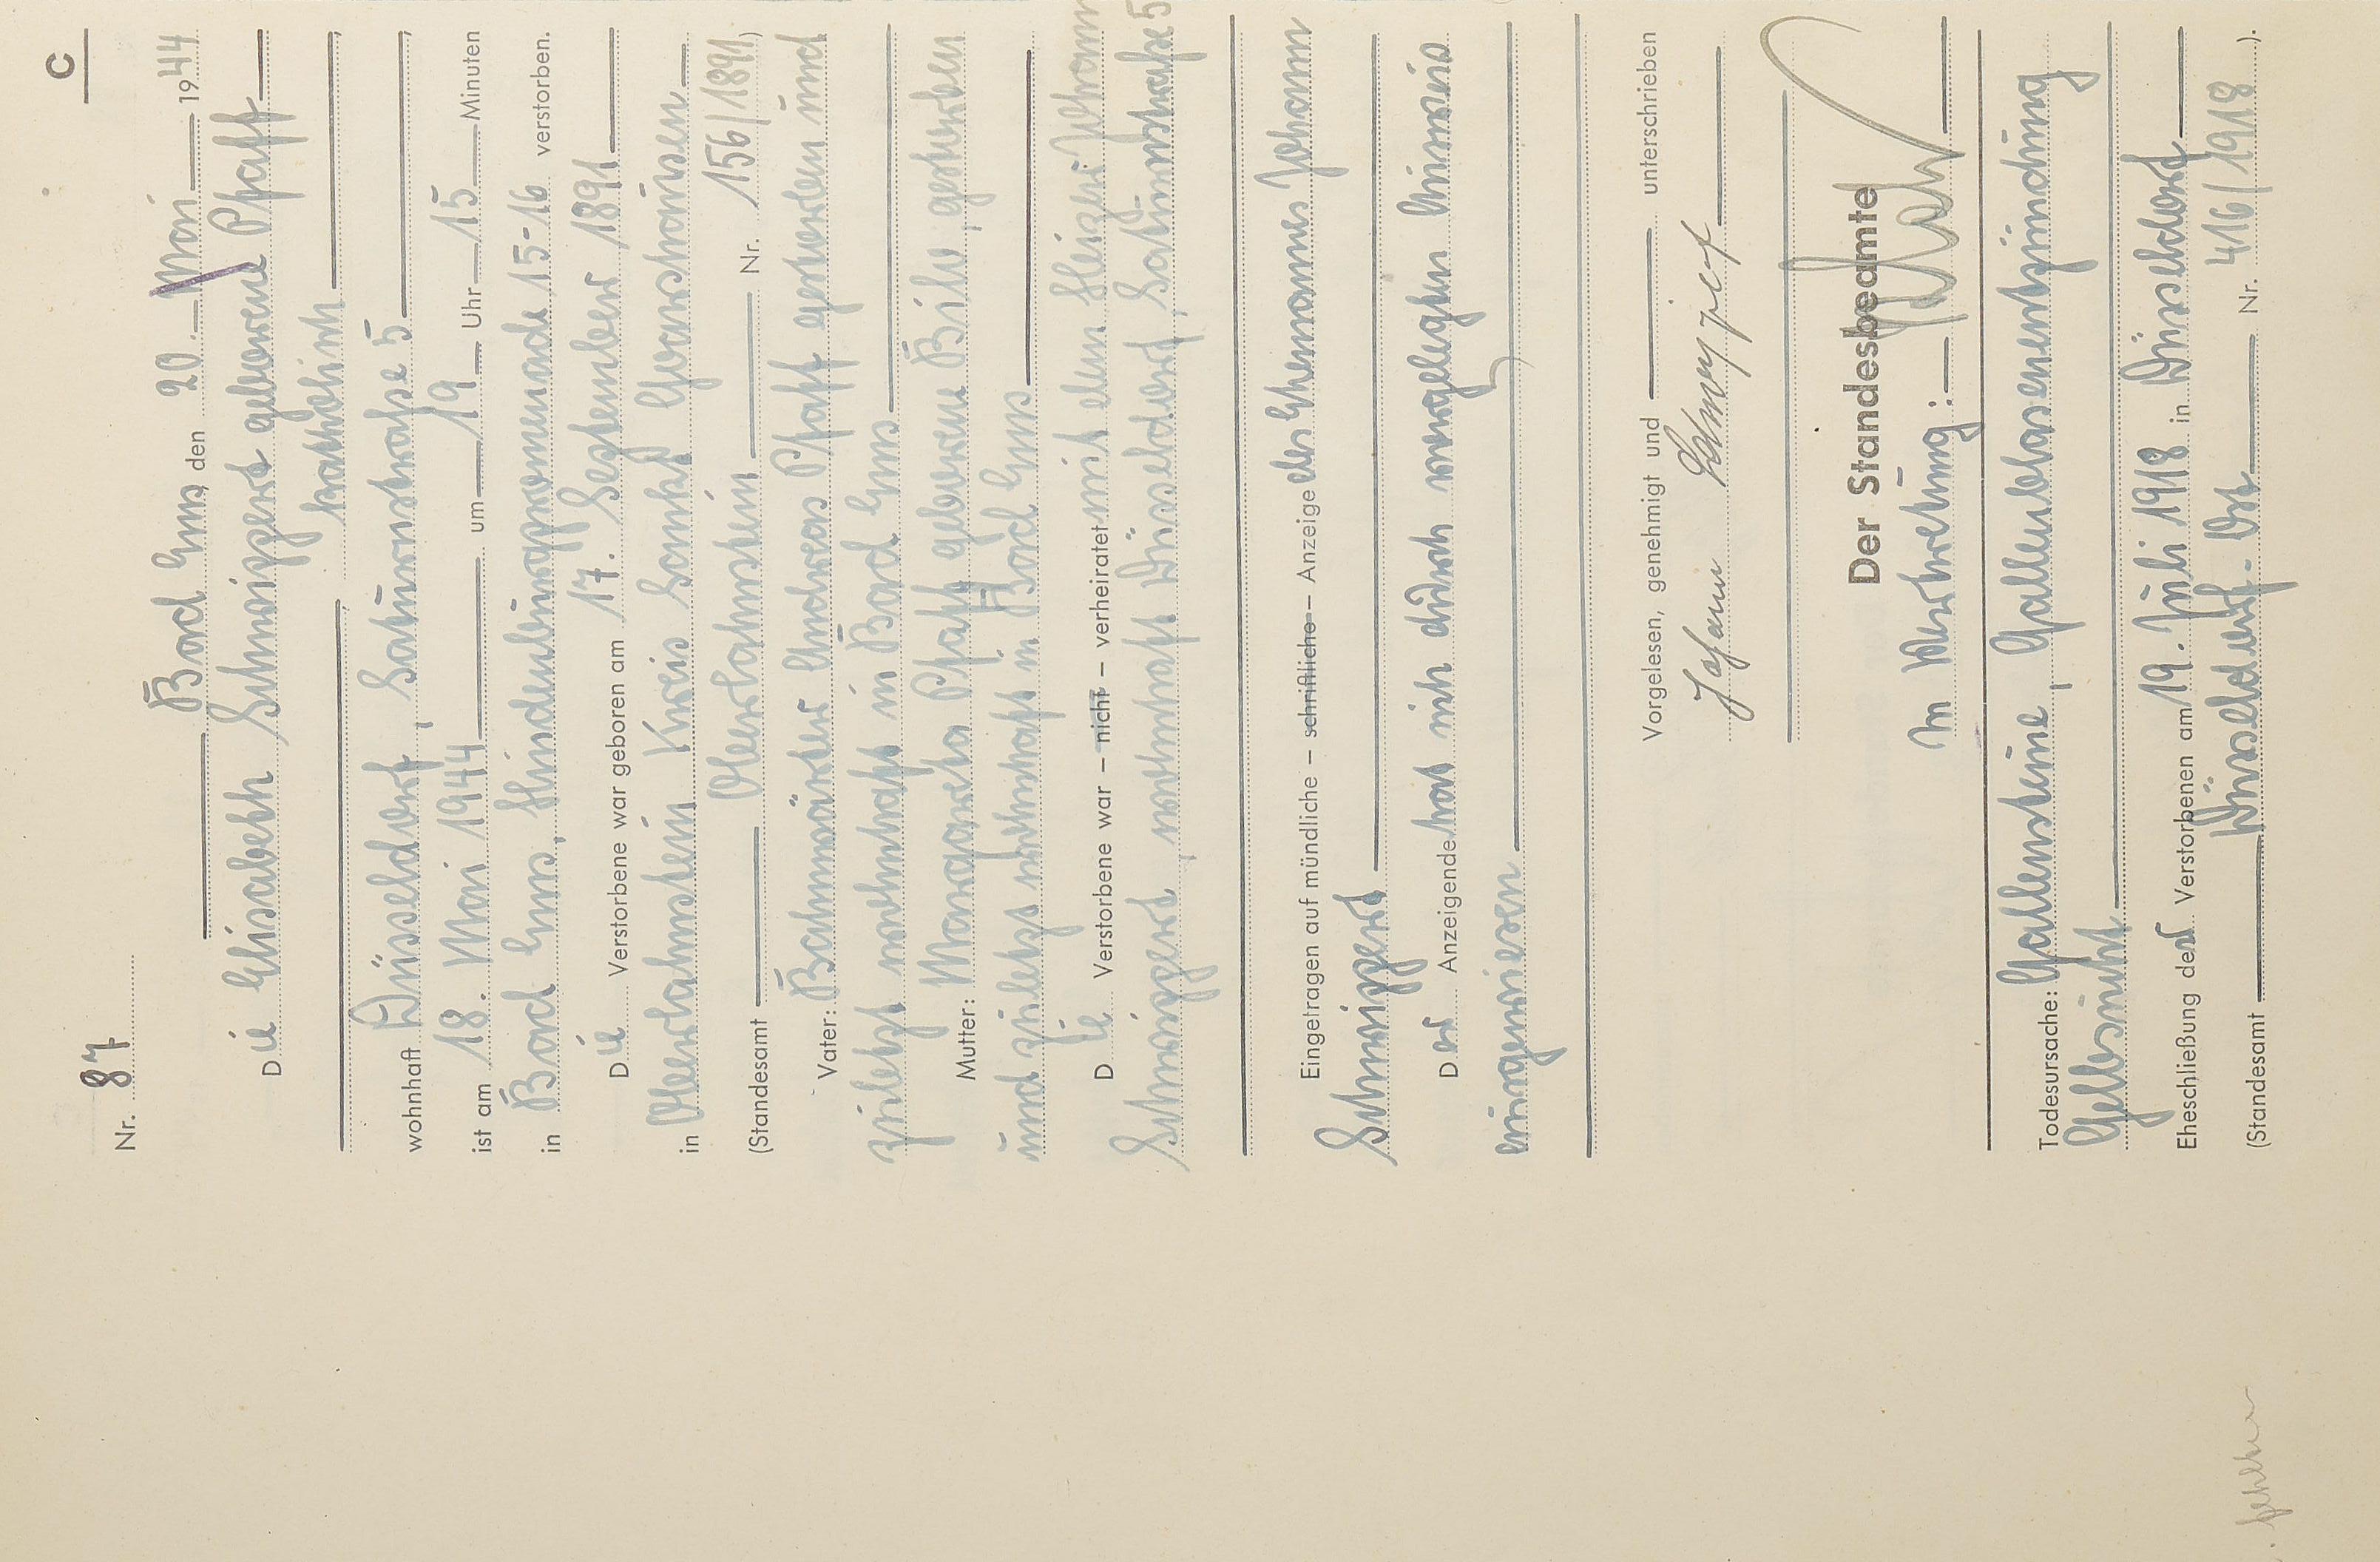 C
Nr. 87
Bad Ems, den 20. Mai 1944
Die Elisabeth Schweippert geborene Pfaff
katholisch
wohnhaft Düsseldorf, Saturnstraße 5
ist am 18. Mai 1944 um 19 Uhr 15 Minuten
in Bad Ems, Hindenburgpromenade 15-16 verstorben.
Die Verstorbene war geboren am 17. September 1891
in Oberlahnstein Kreis Sankt Goarshausen
(Standesamt Oberlahnstein Nr. 156/1891)
Vater: Bahnwärter Andreas Pfaff gestorben und
zuletzt wohnhaft in Bad Ems
Mutter: Margareta Pfaff geborene Bilo, gestorben
und zuletzt wohnhaft in Bad Ems
Die Verstorbene war – nicht – verheiratet mit dem Heizer Johann
Schweippert, wohnhaft Düsseldorf, Saturnstraße 5
Eingetragen auf mündliche – schriftliche – Anzeige des Ehemannes Johann
Schweippert
Der Anzeigende hat sich durch vorgelegten Ausweis
ausgewiesen
Vorgelesen, genehmigt und unterschrieben
Johann Schweippert
Der Standesbeamte
In Vertretung:
Todesursache: Gallensteine, Gallenblasenentzündung
Gelbsucht
Eheschließung der Verstorbenen am 19. Juli 1918 in Düsseldorf
(Standesamt Düsseldorf-Ost Nr. 416/1918).